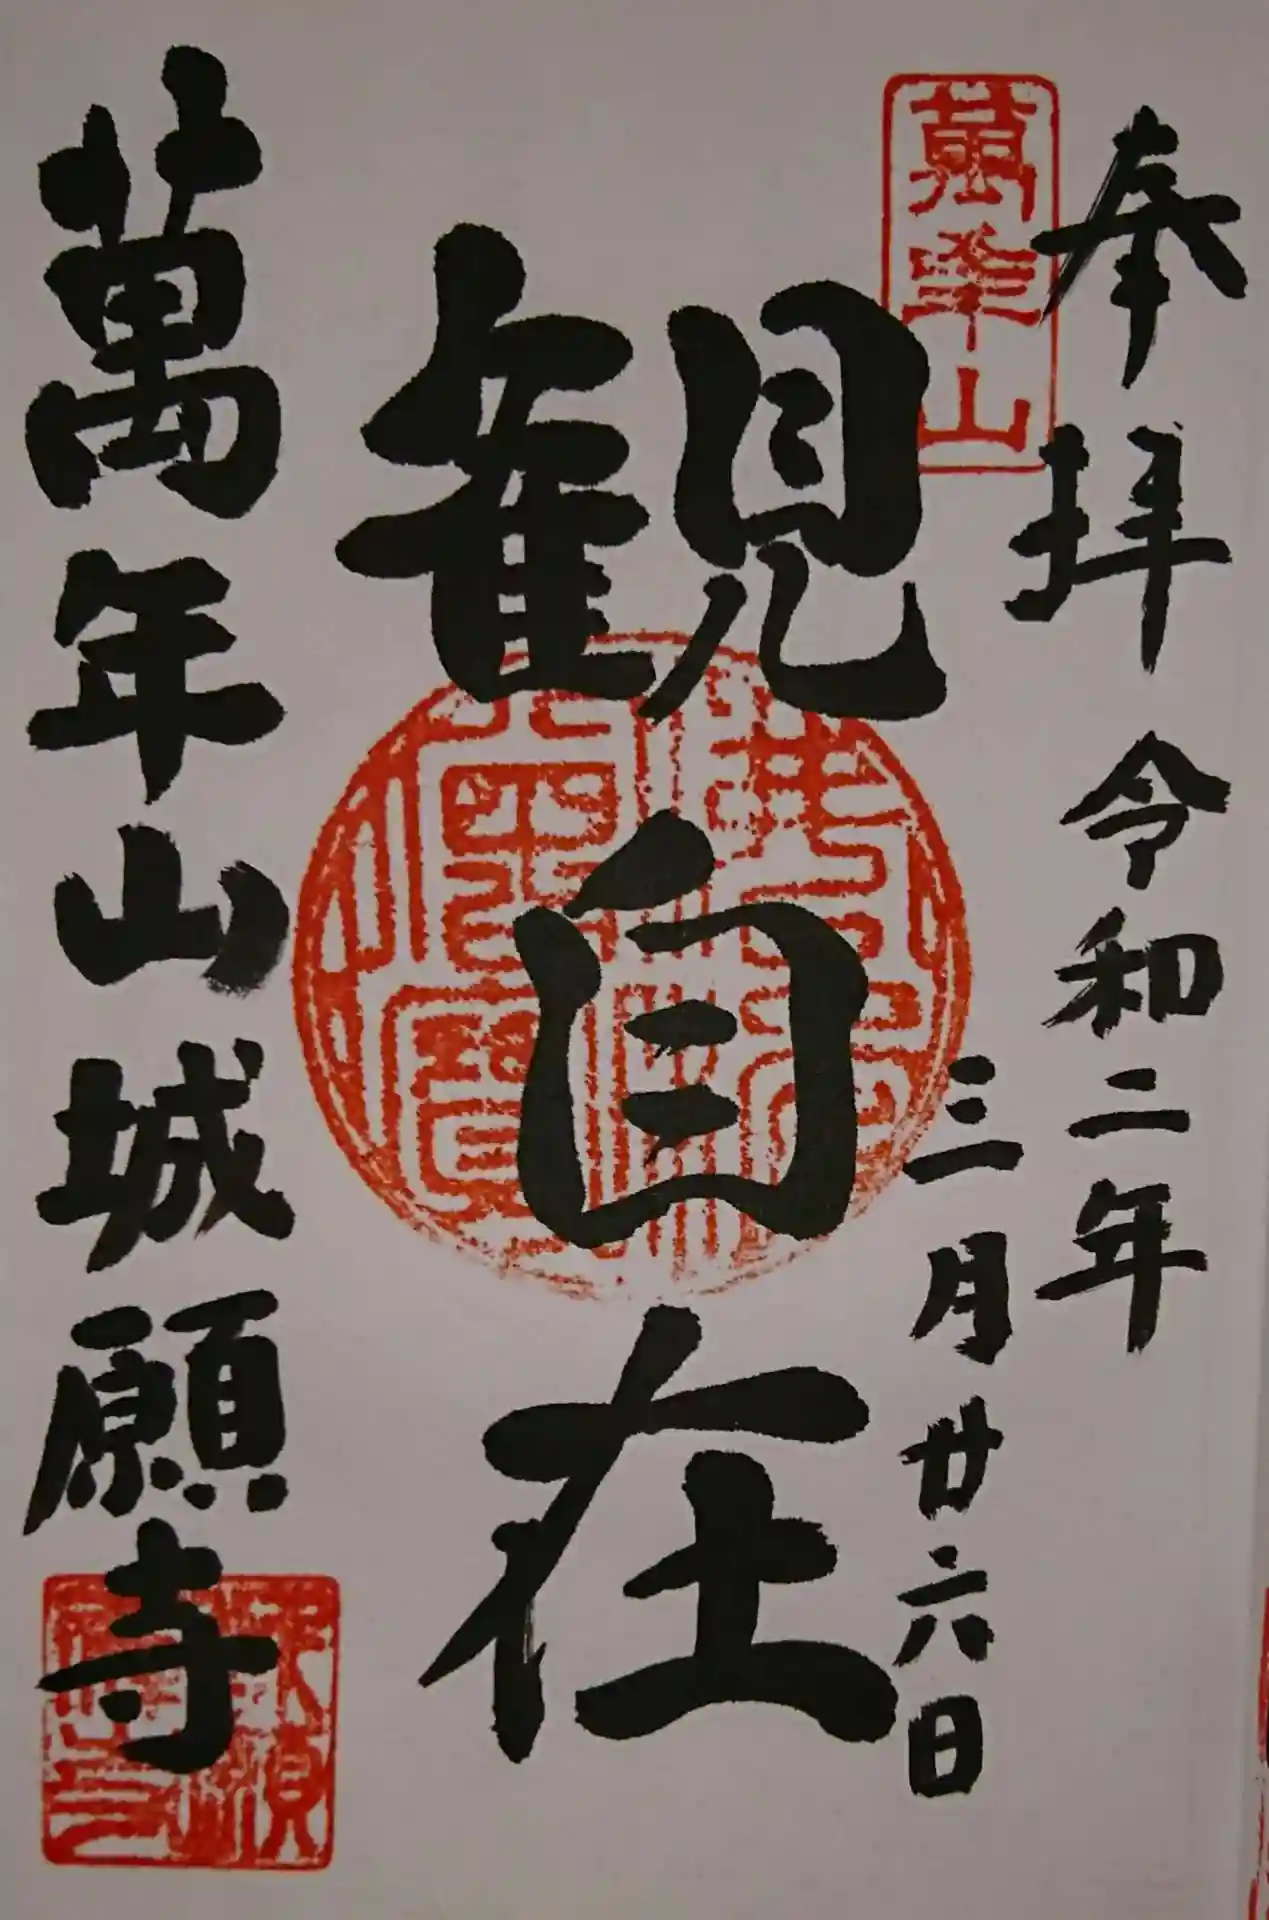 奉拝 令和二年
三月廿六日
萬年山
観自在
萬年山城願寺